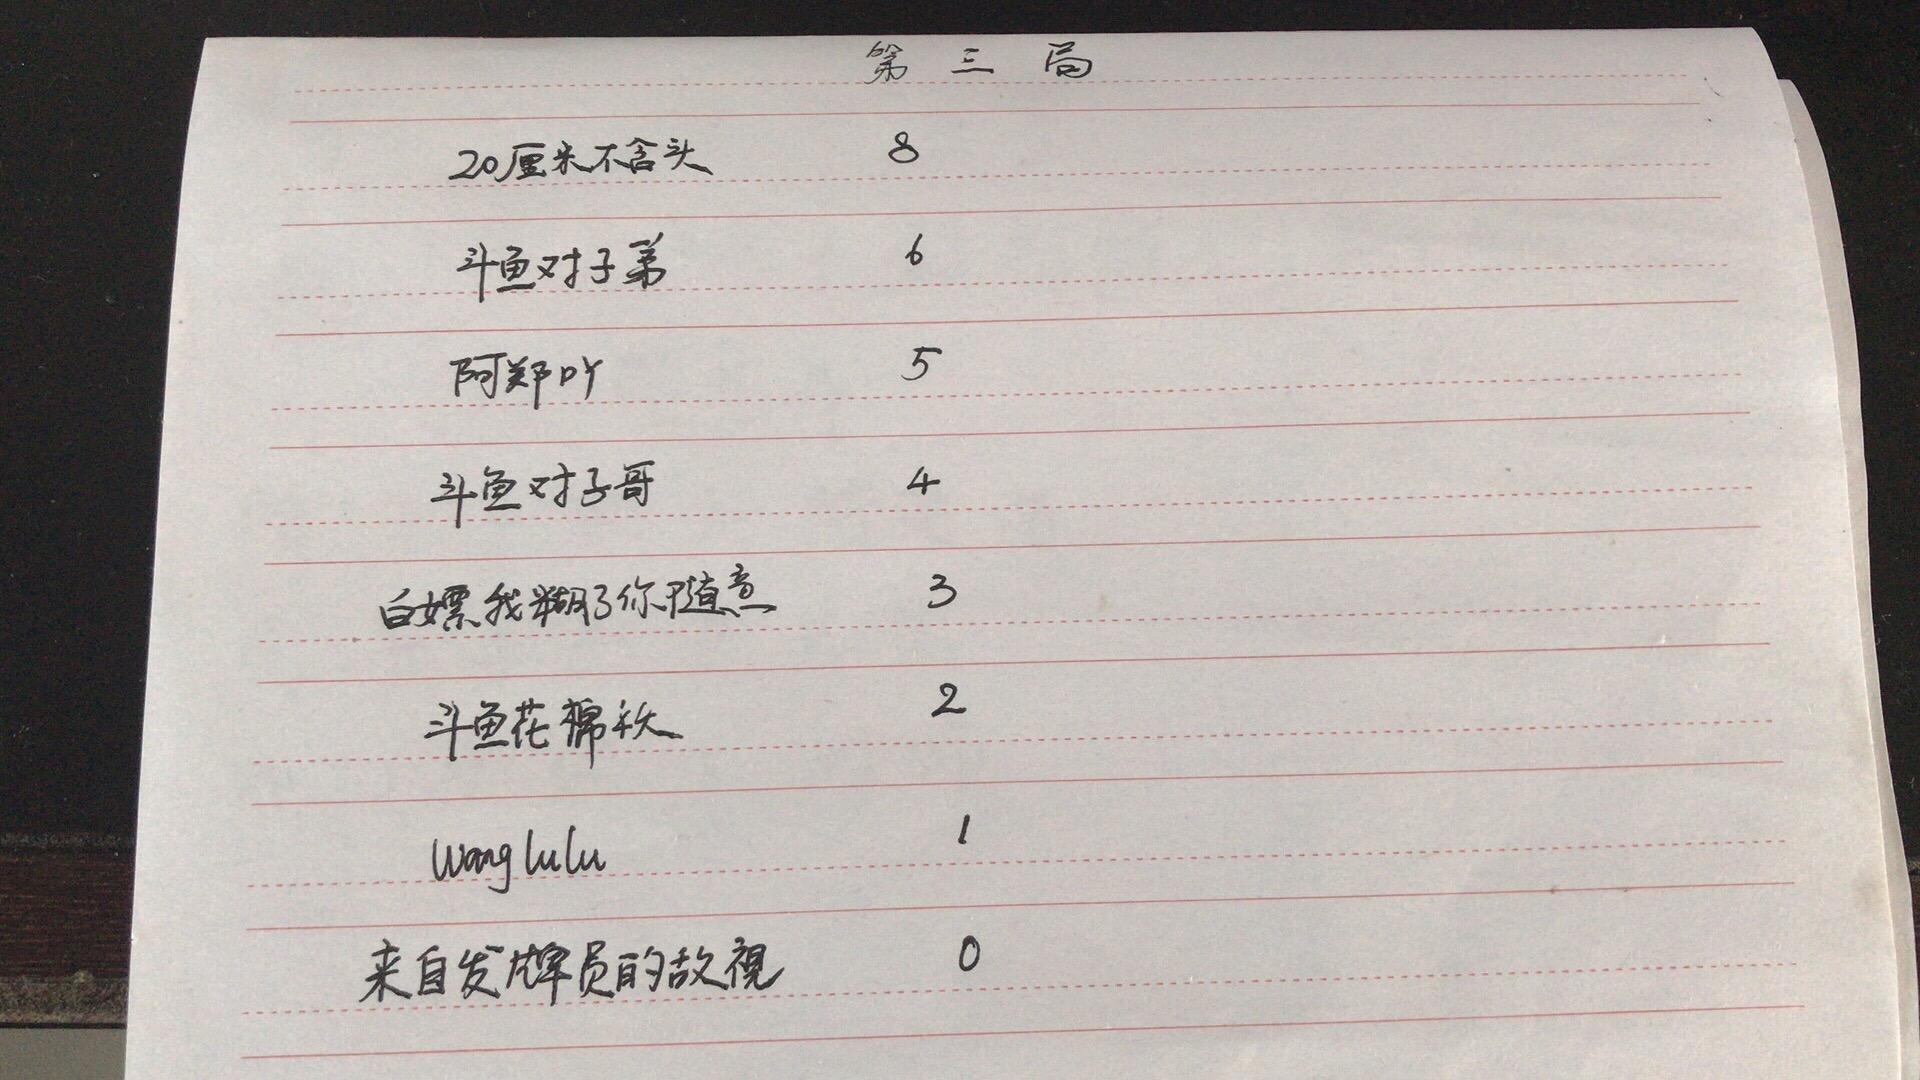 第三局
20厘米不含头 8
斗鱼对子弟 6
阿郑吖 5
斗鱼对子哥 4
白嫖我糊了你随意 3
斗鱼花棉袄 2
Wang lulu 1
来自发牌员的敌視 0